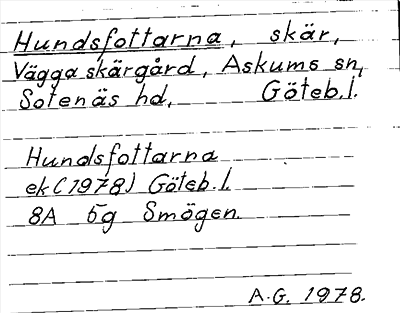 Hundsfottarna, skär,
Vägga skärgård, Askums sn,
Sotenäs hd, Göteb.l.
Hundsfottarna
ek (1978) Göteb.l.
8A 5g Smögen.
A.G. 1978.